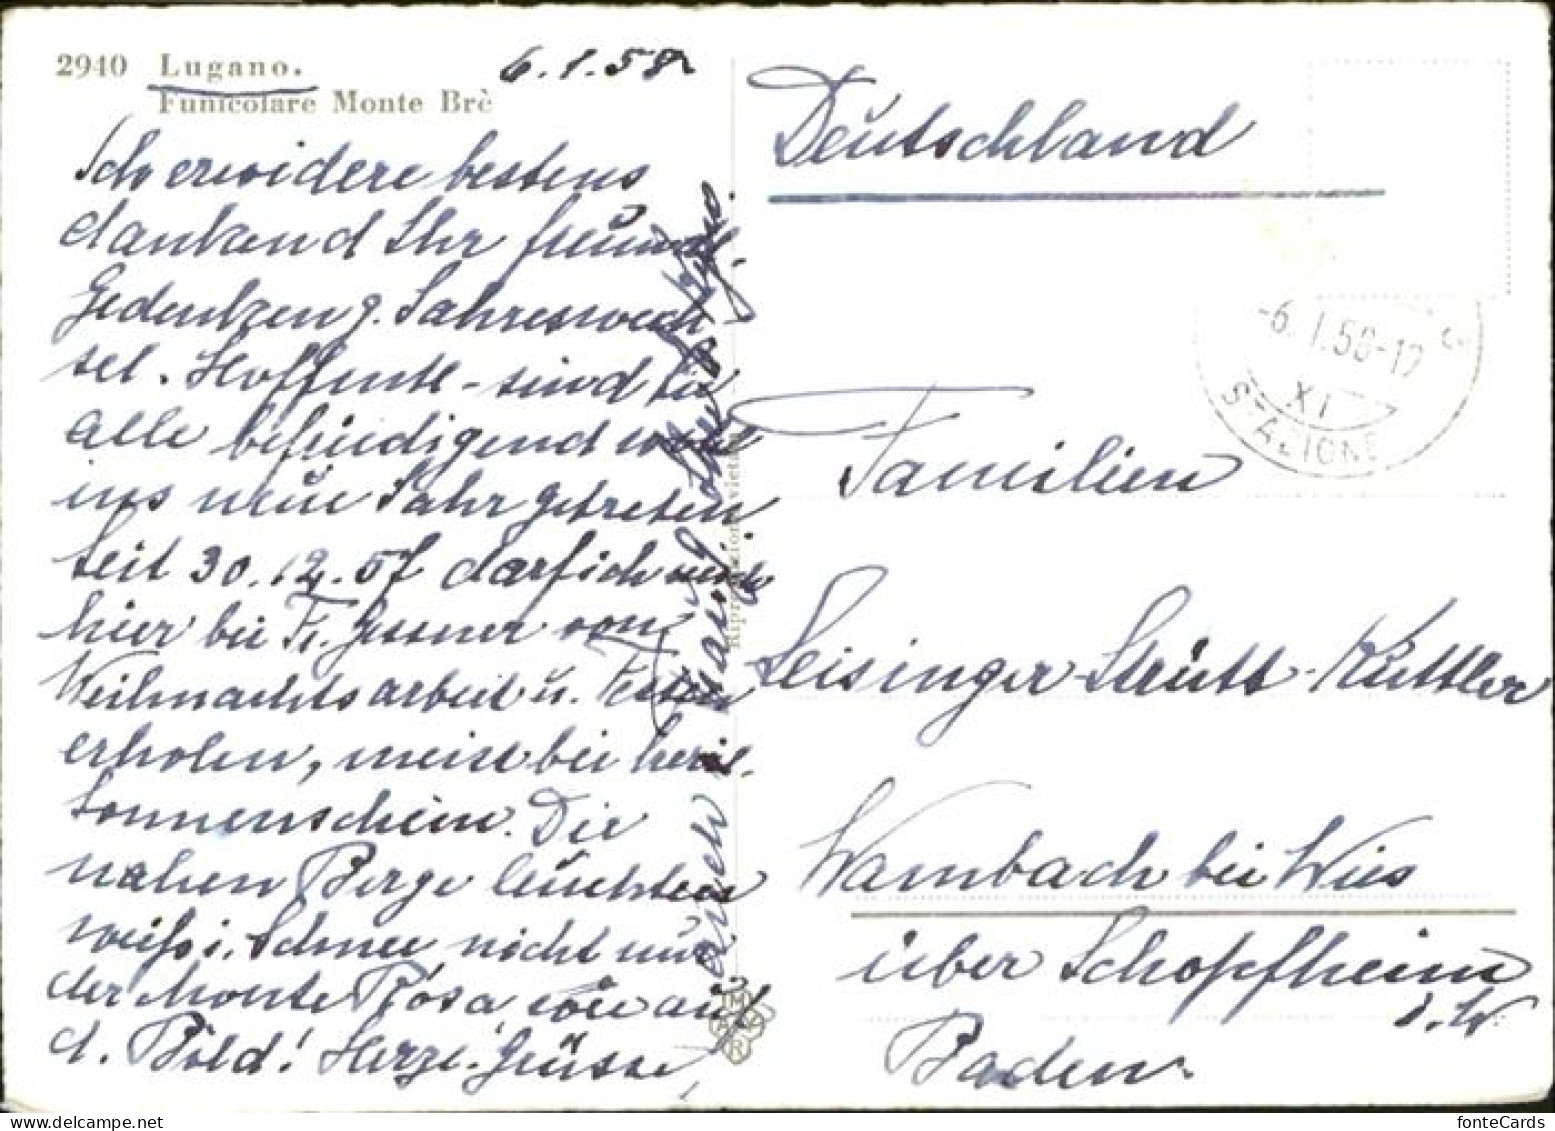 2940 Lugano.
Funicolare Monte Brè
6.1.58
Ich erwidere bestens
dankend Ihr freundl.
Gedenken z. Jahreswech-
sel. Hoffentl. sind Sie
alle befriedigend
ins neue Jahr getreten
Seit 30.12.57 darf ich mich
hier bei Fr. Gessner von
Weihnachtsarbeit u. Festen
erholen, meist bei herrl.
Sonnenschein. Die
nahen Berge leuchten
weiss i. Schnee, nicht nur
der Monte Rosa wie auf
d. Bild! Herzl. Grüsse
auch
Riproduzione vietata
Deutschland
-6.I.58-12
XI
STAZIONE
Familien
Leisinger-Strütt-Küttler
Wambach bei Wies
über Schopfheim
i. W.
Baden
fonteCards